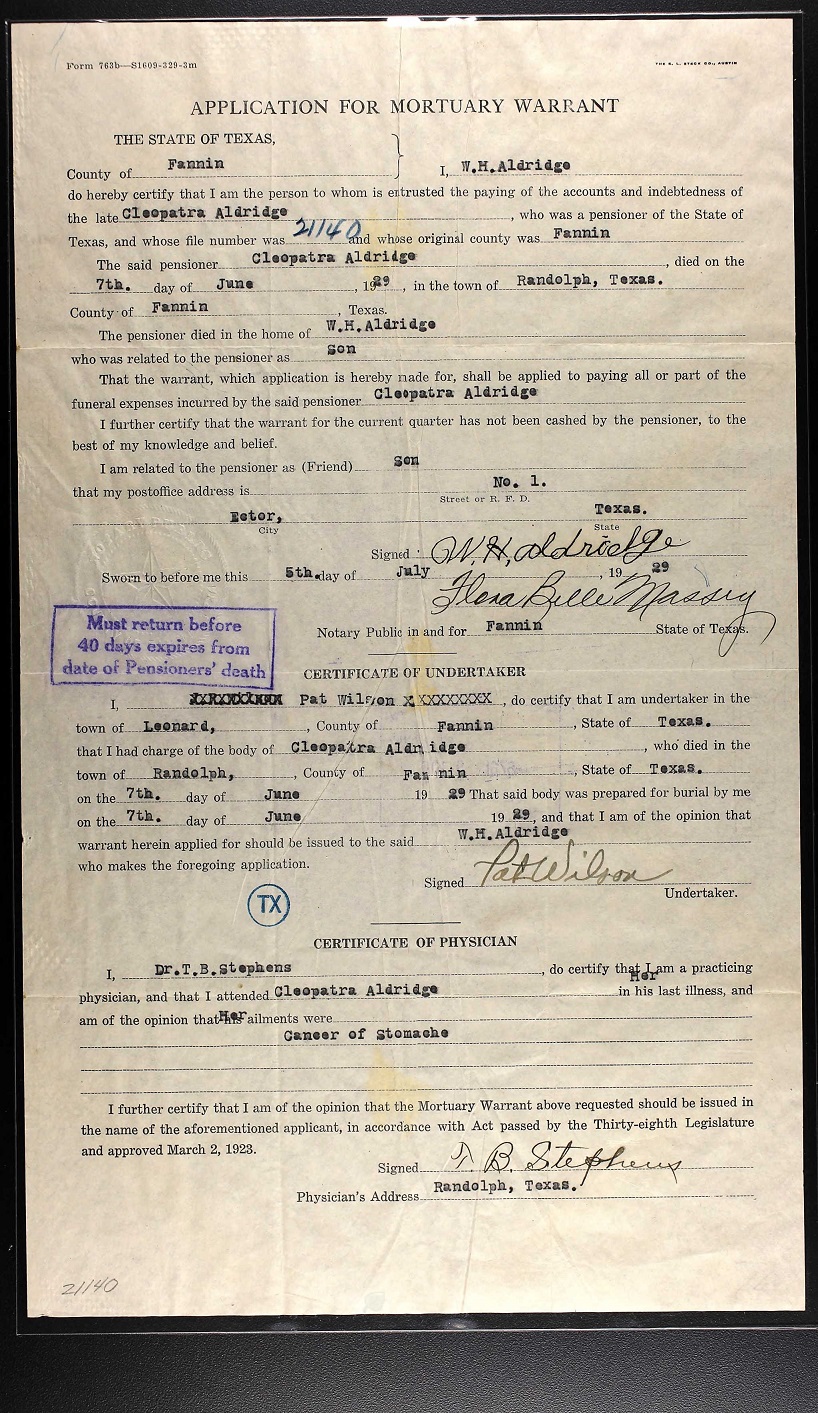 Form 763b—S1609-329-3m
THE E. L. STECK CO., AUSTIN
APPLICATION FOR MORTUARY WARRANT
THE STATE OF TEXAS,
County of Fannin } I, W.H.Aldridge
do hereby certify that I am the person to whom is entrusted the paying of the accounts and indebtedness of
the late Cleopatra Aldridge, who was a pensioner of the State of
Texas, and whose file number was 21140 and whose original county was Fannin
The said pensioner Cleopatra Aldridge, died on the
7th. day of June, 1929, in the town of Randolph, Texas.
County of Fannin, Texas.
The pensioner died in the home of W.H.Aldridge
who was related to the pensioner as son
That the warrant, which application is hereby made for, shall be applied to paying all or part of the
funeral expenses incurred by the said pensioner Cleopatra Aldridge
I further certify that the warrant for the current quarter has not been cashed by the pensioner, to the
best of my knowledge and belief.
I am related to the pensioner as (Friend) Son
that my postoffice address is No. 1.
Street or R. F. D.
Ector, Texas.
City State
Signed W.H. Aldridge
Sworn to before me this 5th. day of July, 1929
Flora Belle Massey
Notary Public in and for Fannin State of Texas.
Must return before
40 days expires from
date of Pensioners' death
CERTIFICATE OF UNDERTAKER
I, XXRXXXXXXX Pat Wilson XXXXXXXXX, do certify that I am undertaker in the
town of Leonard, , County of Fannin, State of Texas.
that I had charge of the body of Cleopatra Aldridge, who died in the
town of Randolph, , County of Fannin, State of Texas.
on the 7th. day of June 19 29 That said body was prepared for burial by me
on the 7th. day of June 19 29, and that I am of the opinion that
warrant herein applied for should be issued to the said W.H.Aldridge
who makes the foregoing application.
Signed Pat Wilson
Undertaker.
TX
CERTIFICATE OF PHYSICIAN
I, Dr.T.B.Stephens, do certify that I am a practicing
Her
physician, and that I attended Cleopatra Aldridge in his last illness, and
am of the opinion that his Her ailments were
Cancer of Stomache
I further certify that I am of the opinion that the Mortuary Warrant above requested should be issued in
the name of the aforementioned applicant, in accordance with Act passed by the Thirty-eighth Legislature
and approved March 2, 1923.
Signed T. B. Stephens
Physician's Address Randolph, Texas.
21140